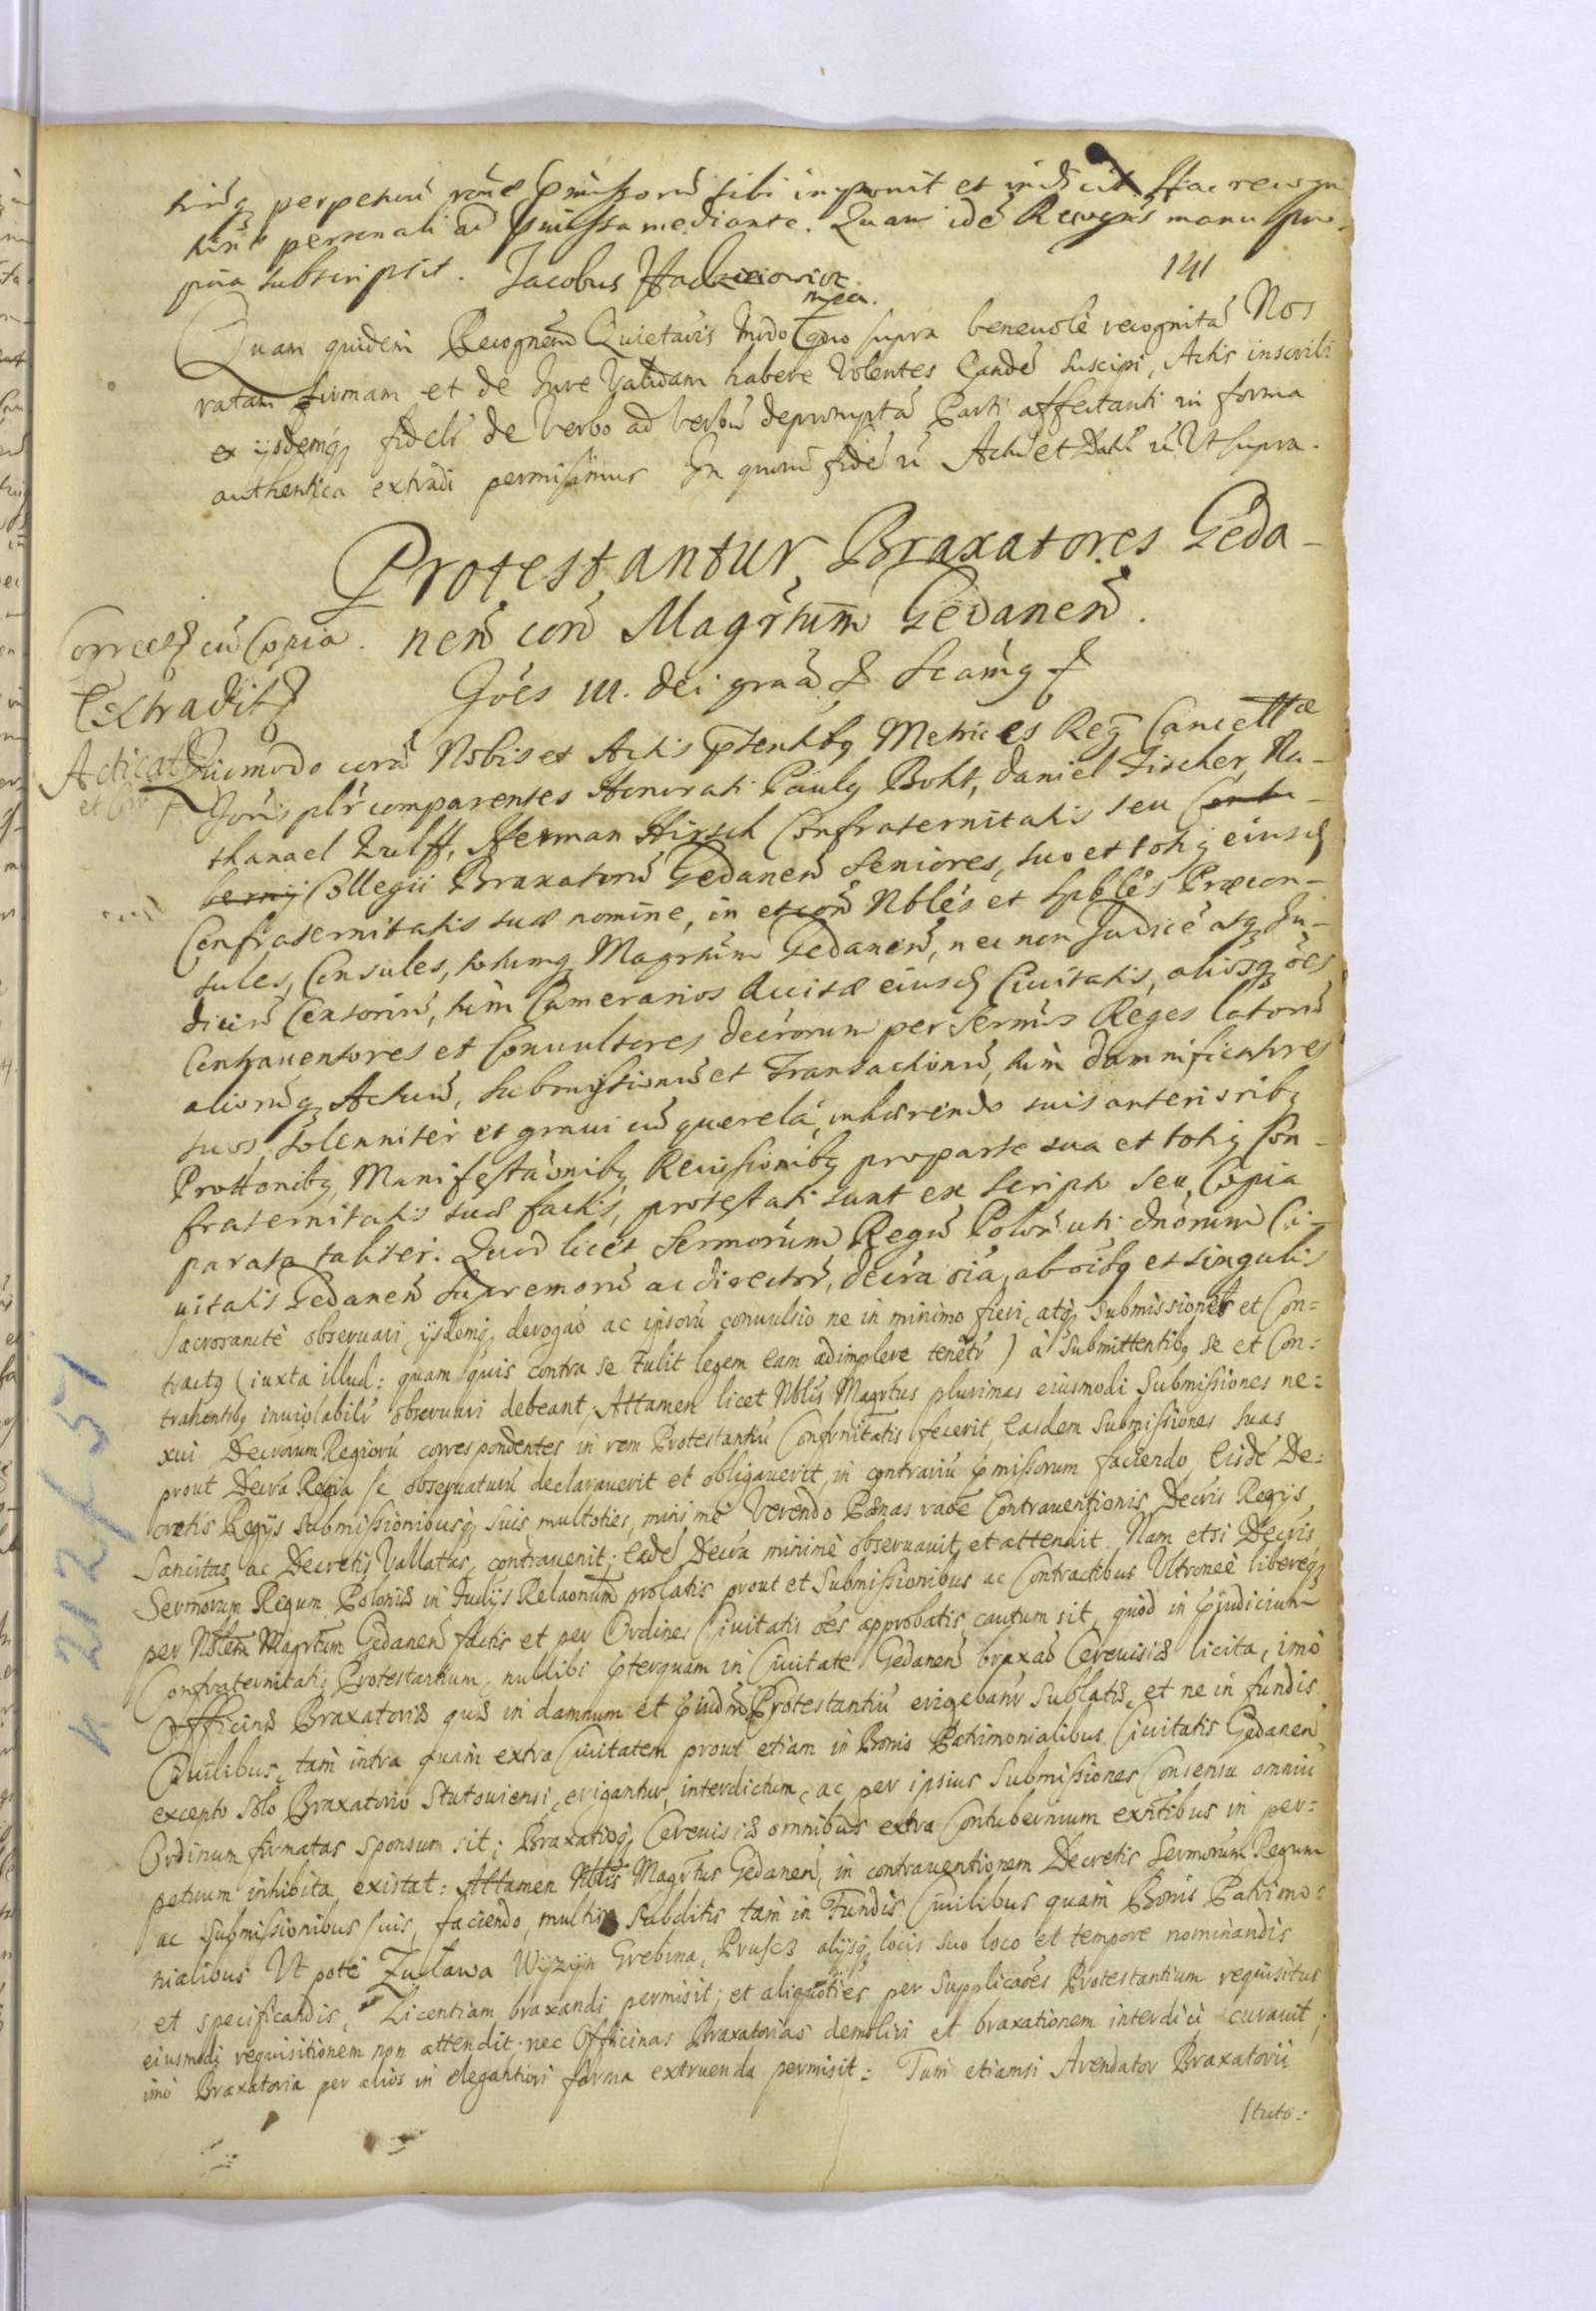 perpetuũ sibi imponit et indicit Hac recogni-
personali ad mediante. Quam idẽ Recogns̃ manu pro-
pria subscripsit. Jacobus
mpa.
141
Quam quidem Recognem̃ Quietãis mõdo quo supra beneuolè recognitã Nos
ratam firmam et de Jure Validam habere Volentes Eandẽ suscipi, Actis inscribi
ex ijsdemq, fidelr̃ de Verbo ad verbũ depromptã Parti affectanti in forma
authentica extradi permisimus In quorũ fidẽ Actũ et Datũ Ut supra.
Protestantur Braxatores Geda-
neñ coñ Magr̃tum Gedaneñ.
Correct cũ Copia.
Extradit
Acticat
Joẽs III. Dei gratiã
Quomodo corã Nobis et Actis p̃ntibq Metrices Regñ Cancellæ
plr̃ comparentes Honorati Paulq Boht, Daniel Fischer, Na-
thanael Wulff, Herman Hirsch Confraternitatis seu Contu-
bernij Collegii Braxatorũ Gedaneñ Seniores, suo et totiq eiusd
Confraternitatis suæ nomine, in et coñ Nblẽs et Spblẽs Præcon-
sules, Consules, totumq Magr̃tum Gedaneñ, nec non Judicẽ atq Ju-
diciũ Censoriũ, tùm Camerarios eiusd Ciuitatis, aliosq oẽs
Contrauentores et Conuulsores Decr̃orum per Sermõs Reges latorũ
aliorũq Actuũ, Submissionũ et Transactionũ, tùm damnificatores
suos, solenniter et graui cũ querelã, inhærendo suis anterioribq
Prot̃tonibq, Manifestãonibq, proparte sua et totiq Con-
fraternitatis suæ factis, protestati sunt ex scripto seu Copia
parata taliter. Quod licet Sermorum Regũ Polon̄ uti dnõrum Ci-
uitatis Gedaneñ Supremorũ ac directorũ, decr̃a oĩa, ab oĩbq et singulis
sacrosanctè obseruari, ijsdemq, derogãõ ac ipsorũ conuulsio ne in minimo fieri, atq submissiones et Con=
tractq (iuxta illud: quam quis contra se tulit legem eam adimplere tenẽtr) à Submittentibq se et Con=
trahentibq inuiolabilr̃ obseruari debeant; Attamen licet Nblis̃ Magr̃tus plurimas eiusmodi Submissiones ne=
xui Decrorum Regiorũ correspondentes in rem Protestantiũ Confrnitatis fecerit, Easdem submissiones suas
prout Decr̃a Regia se obseruaturũ declarauerit et obligauerit, in contrariũ p̃missorum faciendo, Eisdẽ De=
cretis Regijs submissionibusq, suis multoties, minimè Verendo Pœnas raõe Contrauentionis Decr̃is Regijs
Sancitas, ac Decretis Vallatas, contrauenit; Eadẽ Decr̃a minimè obseruauit, et attendit. Nam etsi Decr̃is
Sermorum Regum Poloniæ in Judijs Relaõnum prolatis prout et Submissionibus ac Contractibus Ultroneè liberèq
per Nblem Magr̃tum Gedaneñ factis et per Ordines Ciuitatis oẽs approbatis, cautum sit, quòd in p̃judicium
Confraternitatis Protestantium, nullibi p̃terquam in Ciuitate Gedaneñ braxaõ Cereuisiæ licita, imò
Officinæ Braxatoriæ quæ in damnum et p̃iudm̃ Protestantiũ erigebant̃r sublatæ, et ne in fundis
Ciuilibus, tàm intra quàm extra Ciuitatem prout etiam in Bonis Patrimonialibus Ciuitatis Gedaneñ
excepto solo Braxatorio Stutouiensi, erigantur, interdictum, ac per ipsius Submissiones Consensu omniũ
Ordinum firmatas sponsum sit; Braxatioq, Cereuisiæ omnibus extra Contubernium exñtibus in per=
petuum inhibita existat: Attamen Nblis̃ Magr̃tus Gedaneñ, in contrauentionem Decretis Sermorum Regum
ac submissionibus suis, faciendo, multis subditis tàm in Fundis Ciuilibus quàm Bonis Patrimo=
nialibus Ut potè Zuława Wyzyn Grebina, Pruscz alijsq, locis suo loco et tempore nominandis
et specificandis, Licentiam braxandi permisit; et aliquoties per Supplicaões Protestantium requisitus
eiusmodi requisitionem non attendit, nec Officinas Braxatorias demoliri et braxationem interdici curauit;
imò Braxatoria per alios in elegantiori forma extruenda permisit: Tum etiamsi Arendator Braxatorii
Stuto: